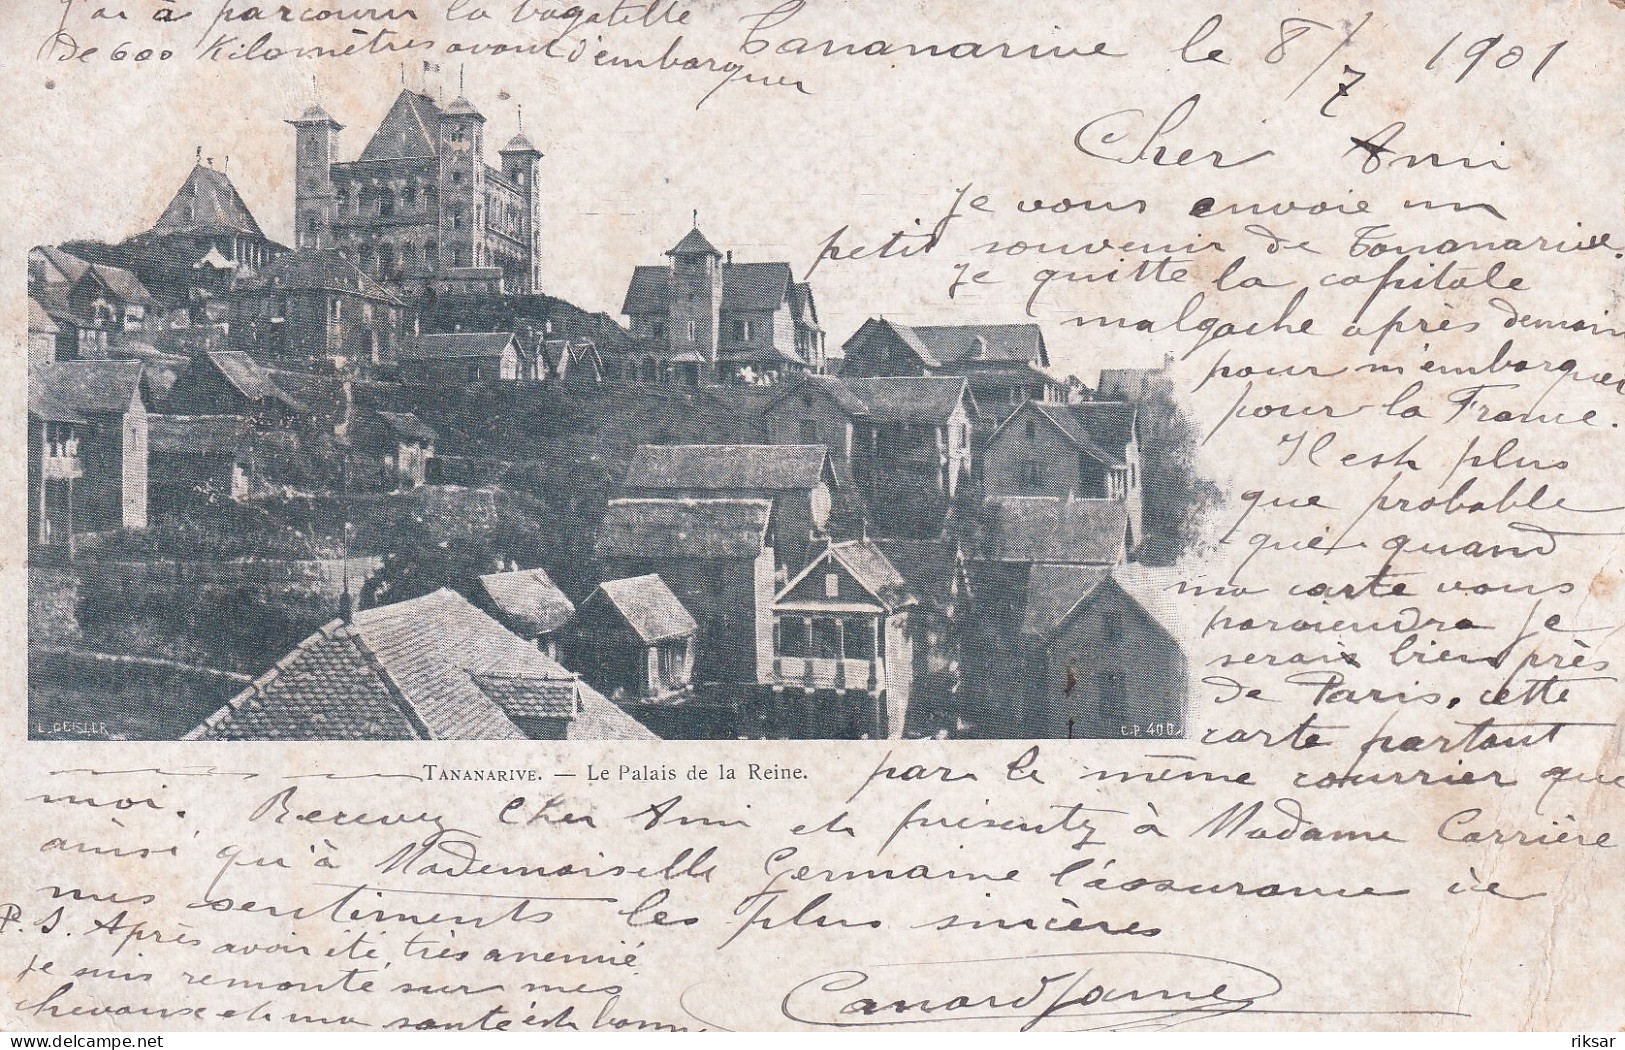 J'ai à parcourir la bagatelle
de 600 Kilomètres avant d'embarquer
Tananarive le 8/7 1901
Cher Ami
Je vous envoie un
petit souvenir de Tananarive.
Je quitte la capitale
malgache après demain
pour m'embarquer
pour la France.
Il est plus
que probable
que quand
ma carte vous
parviendra je
serais bien près
de Paris, cette
carte partant
L. GEISLER
C.P. 400
TANANARIVE. — Le Palais de la Reine.
par le même courrier que
moi. Recevez Cher Ami et présentez à Madame Carrière
ainsi qu'à Mademoiselle Germaine l'assurance de
mes sentiments les plus sincères
P.S. Après avoir été très anémié
je suis remonté sur mes
chevaux et ma santé est bonne
riksar
delcampe.net